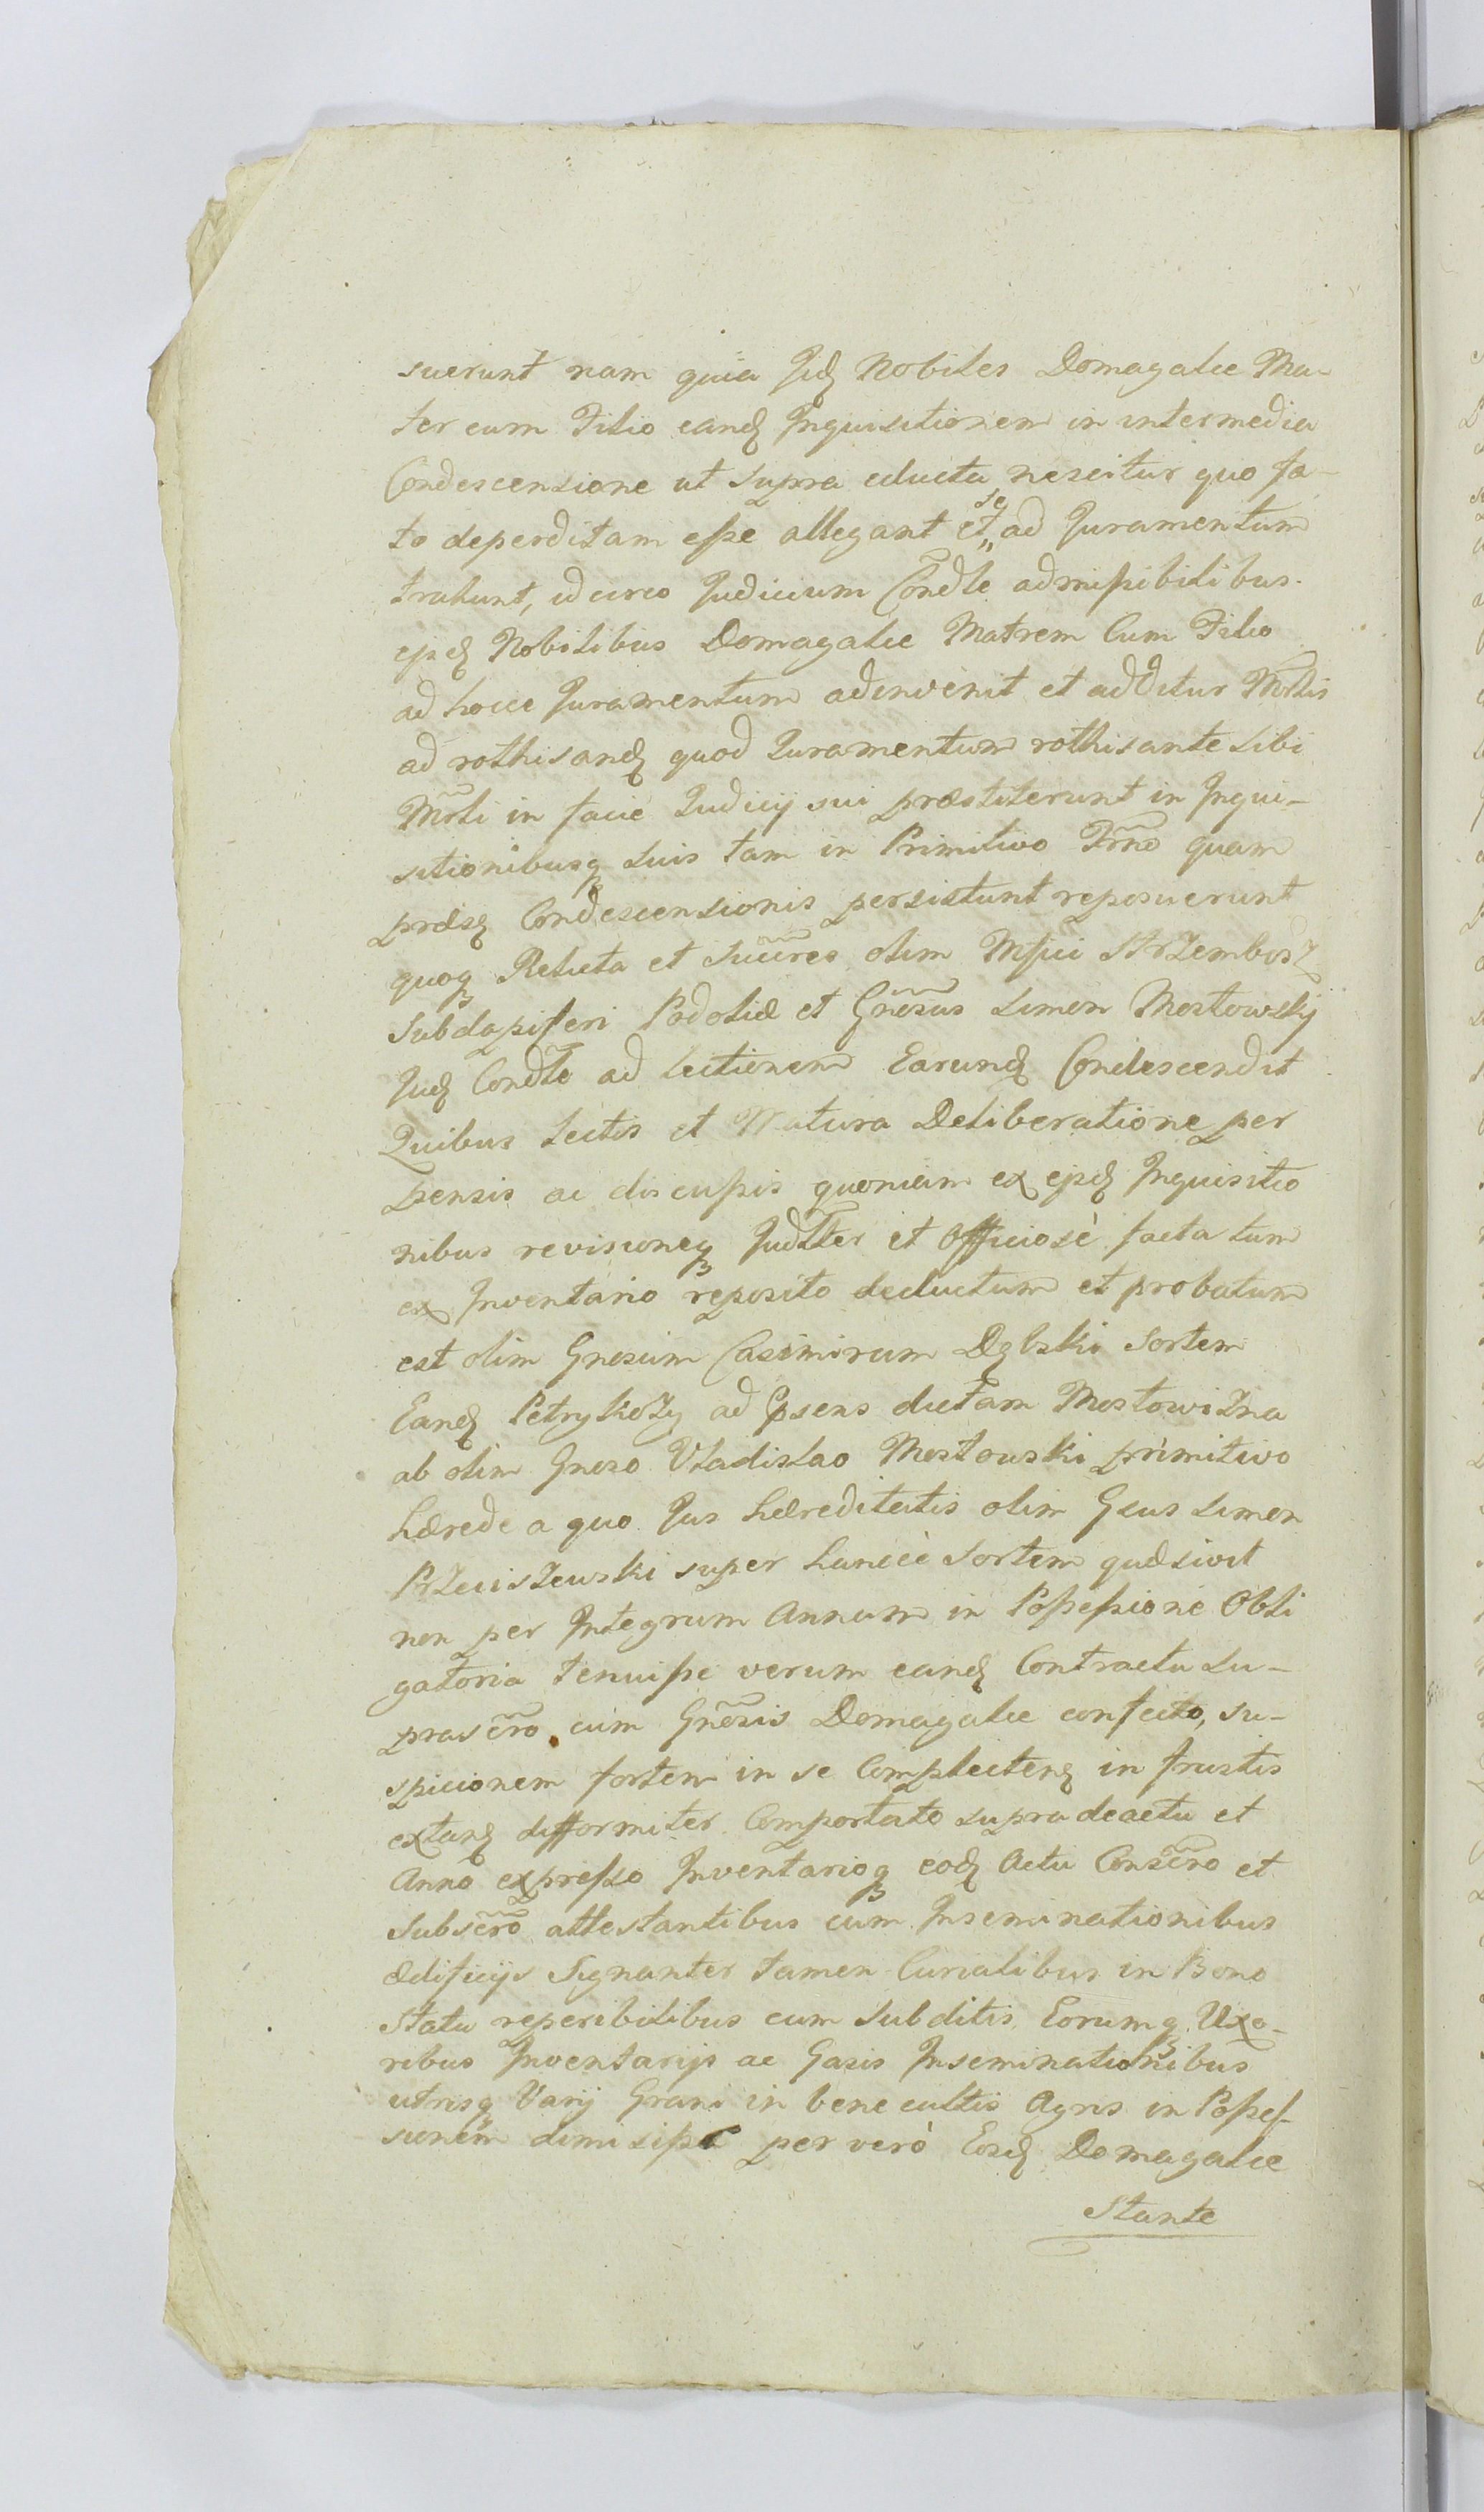 suerunt nam quia Jid Nobiles Domagalie Ma-
ter cum Filio eand Inquisitionem in intermedia
Condescensione ut supra educta, nescitur quo fa-
to deperditam esse allegant et se ad Juramentum
trahunt, idcirco Judicium Condle admissibilibus
ejsd Nobilibus Domagalie Matrem Cum Filio
ad hocce Juramentum adinvenit et additur Mrlis
ad rothisand quod Juramentum rothisante sibi
Mrli in facie Judicij sui præstiterunt in Inqui-
sitionibusq suis tam in Primitivo Trno quam
præsq Condescensionis persistunt reposuerunt
quoq Relicta et Succres olim Mfici Strzembosz
Subdapiferi Podoliæ et Gnosus Simon Mostowskij
Jud Condle ad lectionem Earund Condescendit
Quibus lectis et Matura Deliberatione per
pensis ac discussis quoniam ex ejsd Inquisitio
nibus revisioneq Judller et Officiosè facta tum
ex Inventario reposito deductum et probatum
est olim Gnosum Casimirum Dębski Sortem
Eand Petrykozy ad Psens dictam Mostowizna
ab olim Gnoso Vladislao Mostowski primitivo
hærede a quo Jus hæreditatis olim Gsus Simon
Przeciszewski super hancce Sortem quæsivit
non per Integrum Annum in Possessione Obli
gatoria tenuisse verum eand Contractu su-
prascro cum Gnosis Domagalie confecto, su-
spicionem fortem in se Complectend in frustis
extand difformiter Comportato supra de actu et
Anno expresso Inventarioq eod Actu Conscro et
Subscro attestantibus cum Inseminationibus
ædificijs Signanter tamen Curialibus in Bono
Statu reperibilibus cum Subditis Eorumq Uxo-
ribus Inventarijs ac Gazis Inseminationibus
utrisq Varij Grani in bene cultis Agris in Posses-
sionem dimisisse per verò Eosd Domagalie
Stante